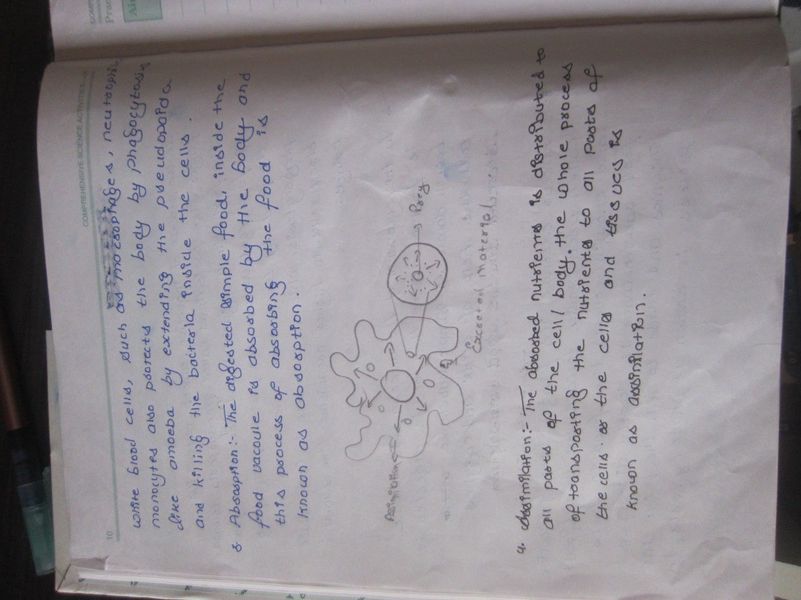 10
COMPREHENSIVE SCIENCE ACTIVITIES
white blood cells, such as macrophages, neutrophil
monocytes also protects the body by phagocytosis
like amoeba by extending the pseudopoida
and killing the bacteria inside the cells.
3. Absorption:- The digested simple food, inside the
food vacoule is absorbed by the body and
this process of absorbing the food is
known as absorption.
Prey
Excreted Material.
4. Assimilation:- The absorbed nutrients is distributed to
all parts of the cell/body. the whole process
of transporting the nutrients to all parts of
the cells or the cells and tissues is
known as assimilation.